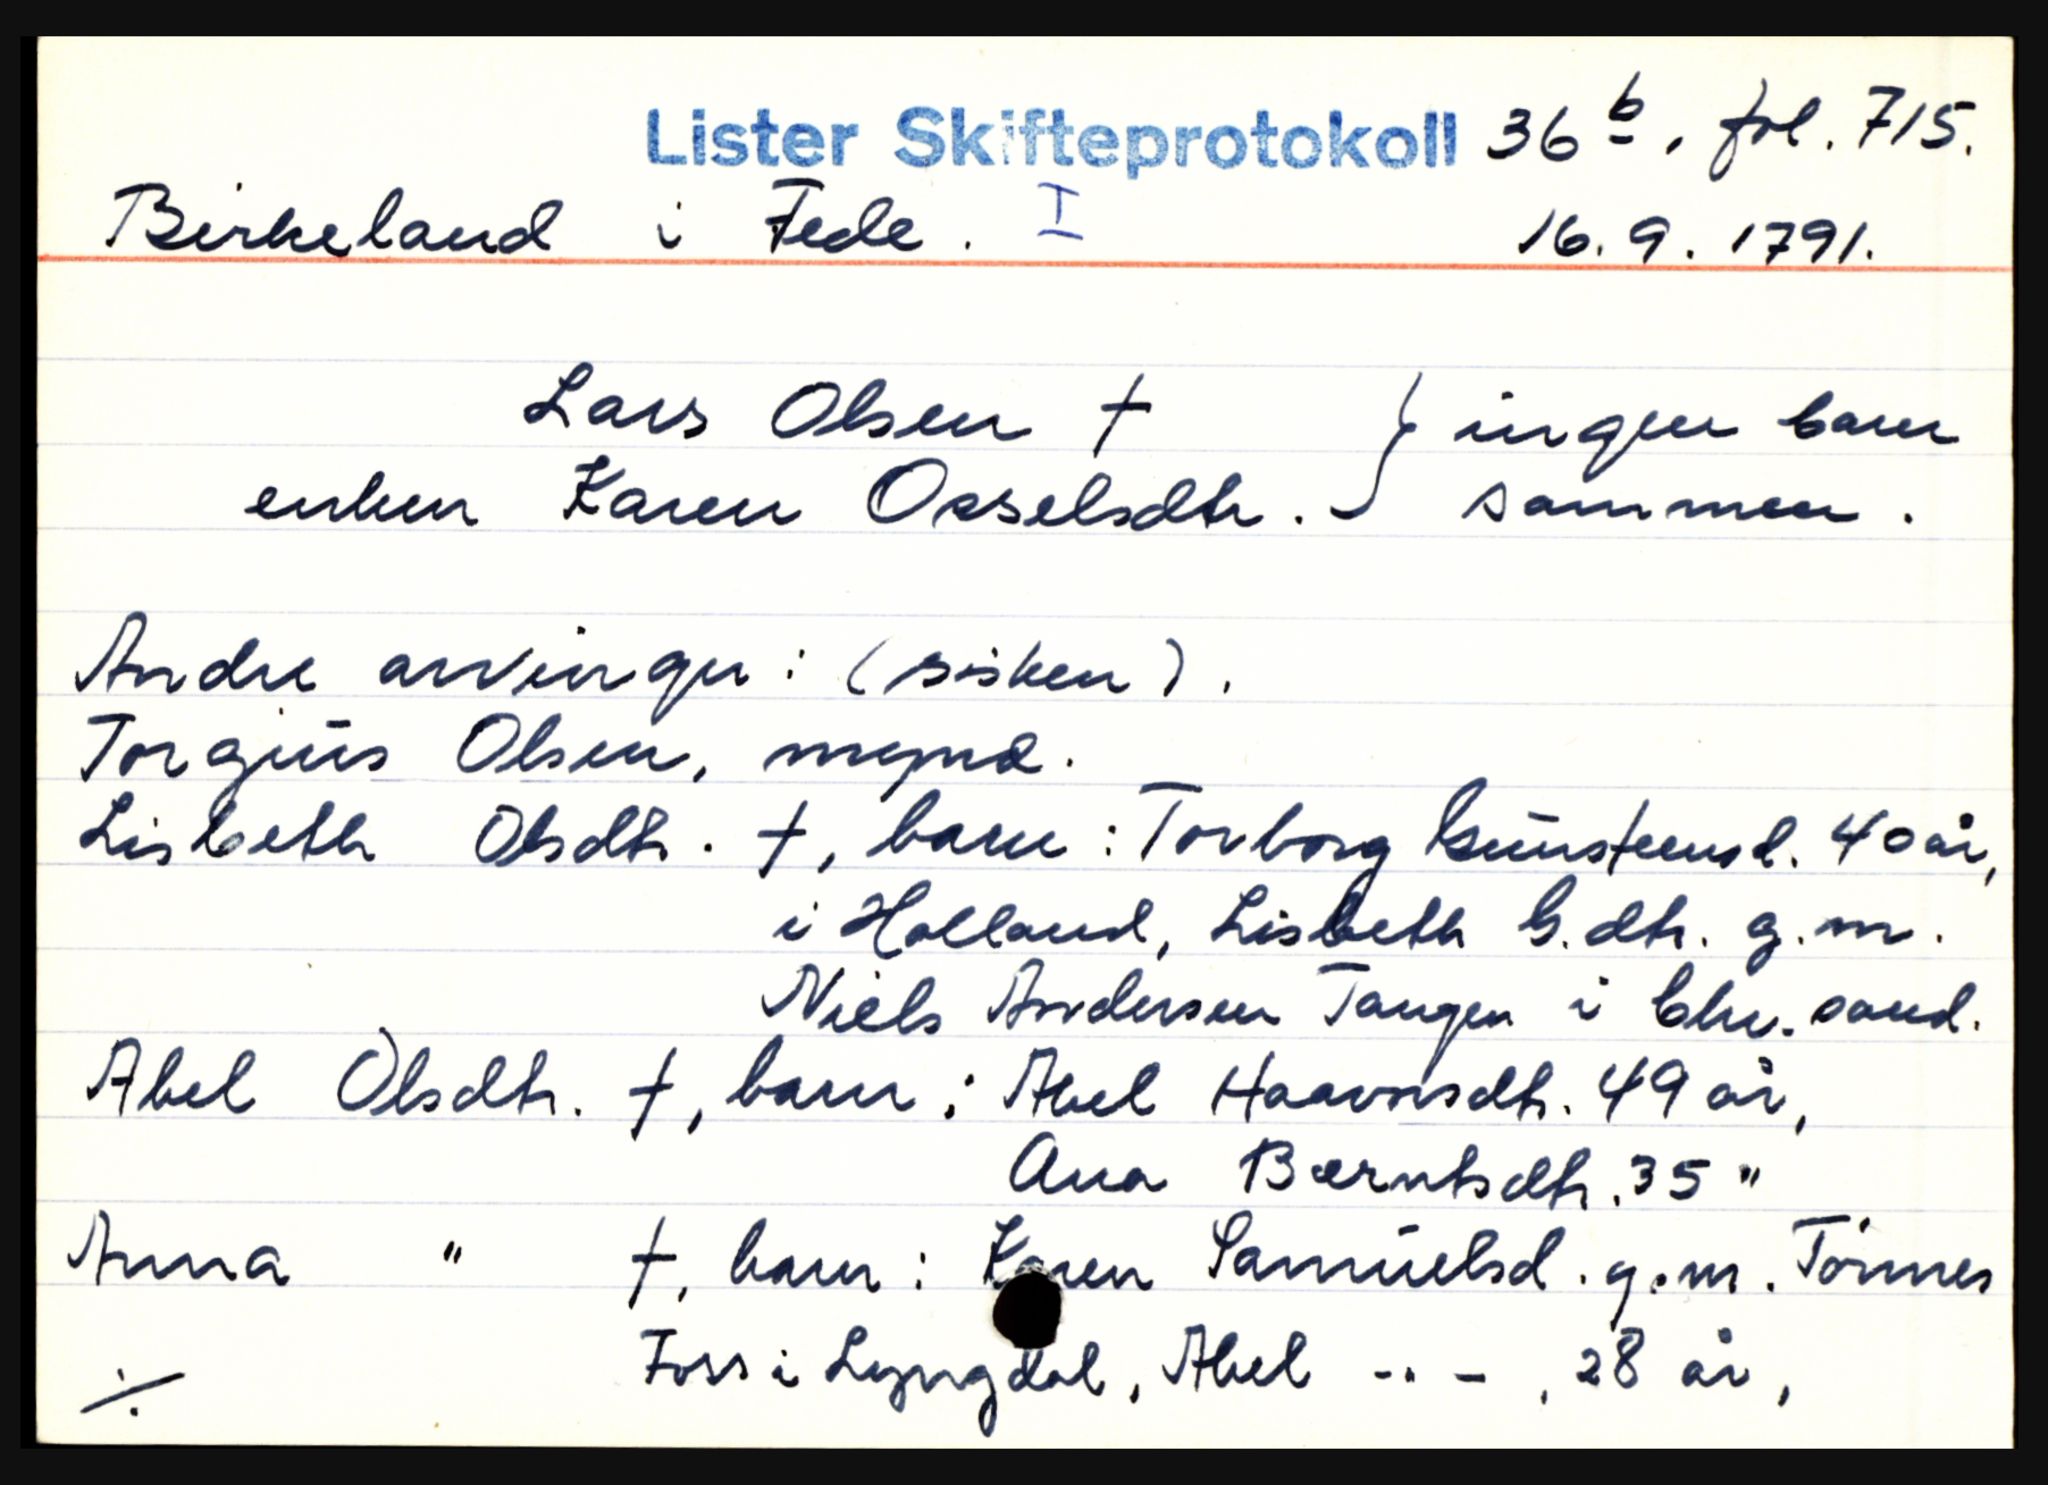 Lister Skifteprotokoll 36 b, fol. 715.
Birkeland i Fede. I 16.9.1791.
Lars Olsen † } ingen barn
enken Karen Osselsdtr. } sammen.
Andre arvinger: (sisken).
Torgius Olsen, mynd.
Lisbeth Olsdtr. †, barn: Torborg Gunsteensd. 40 år,
i Holland, Lisbeth G.dtr. g.m.
Niels Andersen Tangen i Chr.sand.
Abel Olsdtr. †, barn: Abel Haavorsdtr. 49 år,
Ana Berntsdtr. 35 "
Anna " †, barn: Karen Samuelsd. g.m. Tönnes
Foss i Lyngdal, Abel -"-, 28 år,
./.